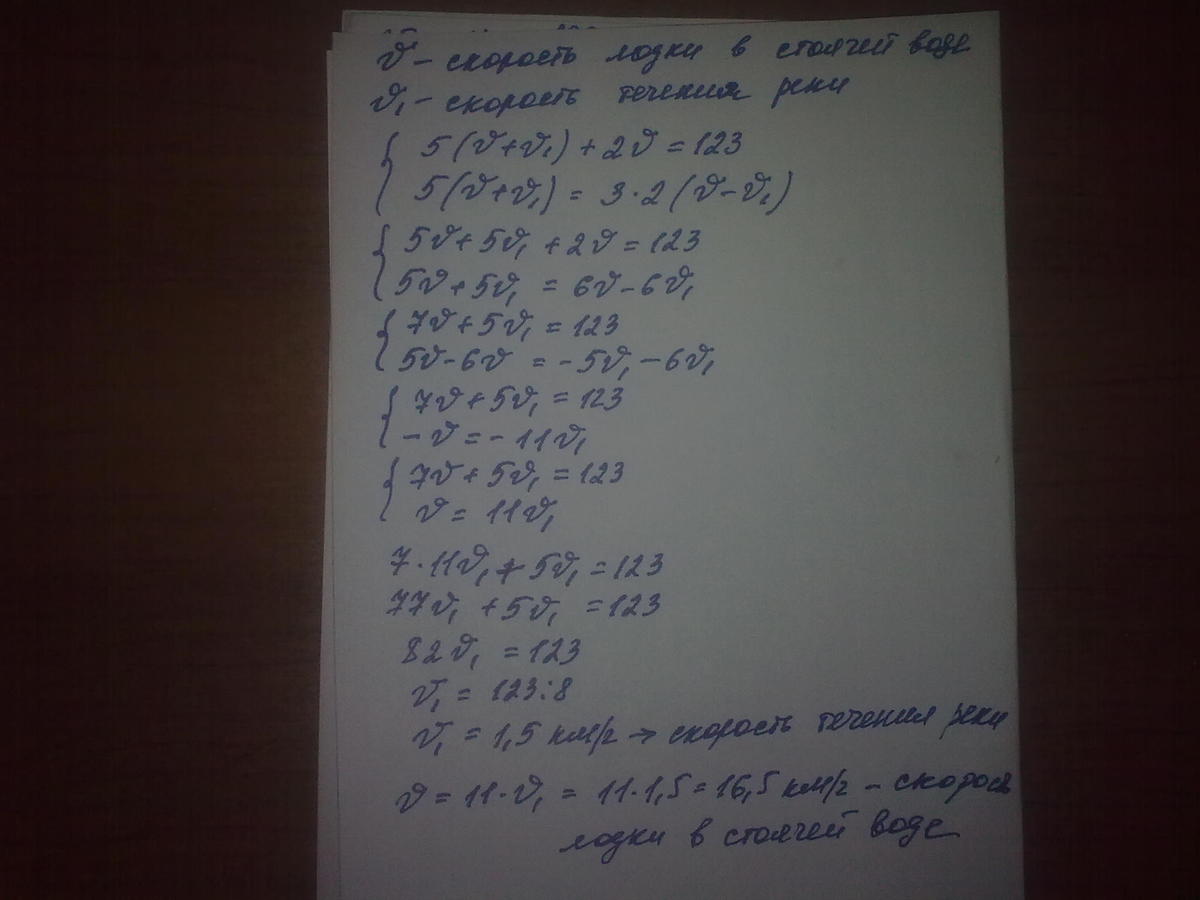 v - скорость лодки в стоячей воде
v₁ - скорость течения реки
{ 5(v+v₁) + 2v = 123
5(v+v₁) = 3·2(v-v₁)
{ 5v+5v₁ + 2v = 123
5v+5v₁ = 6v-6v₁
{ 7v+5v₁ = 123
5v-6v = -5v₁ -6v₁
{ 7v+5v₁ = 123
-v = -11v₁
{ 7v+5v₁ = 123
v = 11v₁
7·11v₁ + 5v₁ = 123
77v₁ +5v₁ = 123
82v₁ = 123
v₁ = 123:8
v₁ = 1,5 км/г → скорость течения реки
v = 11·v₁ = 11·1,5 = 16,5 км/г - скорость
лодки в стоячей воде